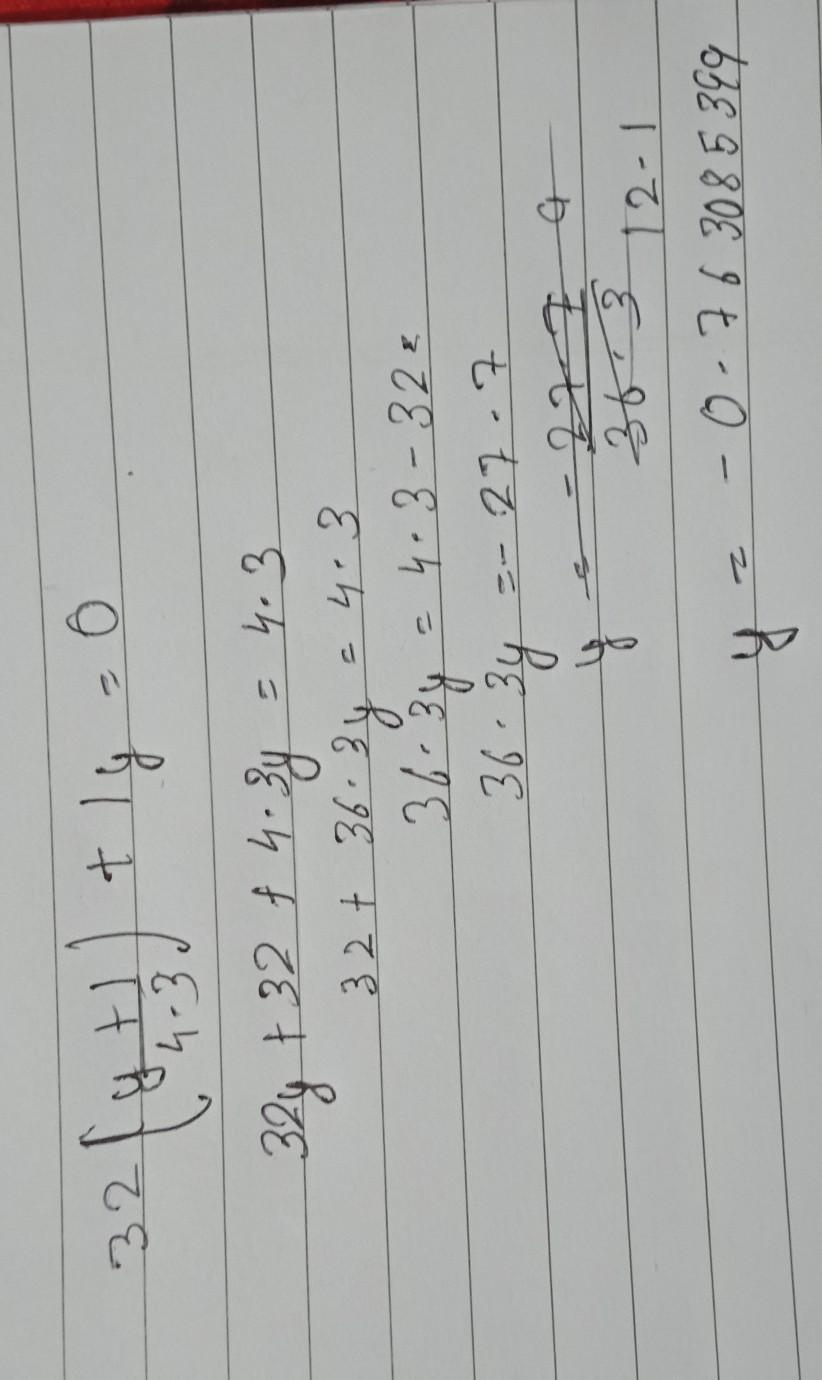 32 (y+1/4.3) + 1y = 0
32y + 32 + 4.3y = 4.3
32 + 36.3y = 4.3
36.3y = 4.3 - 32
36.3y = - 27.7
y = - 27.7/36.3
y = - 0.763085399